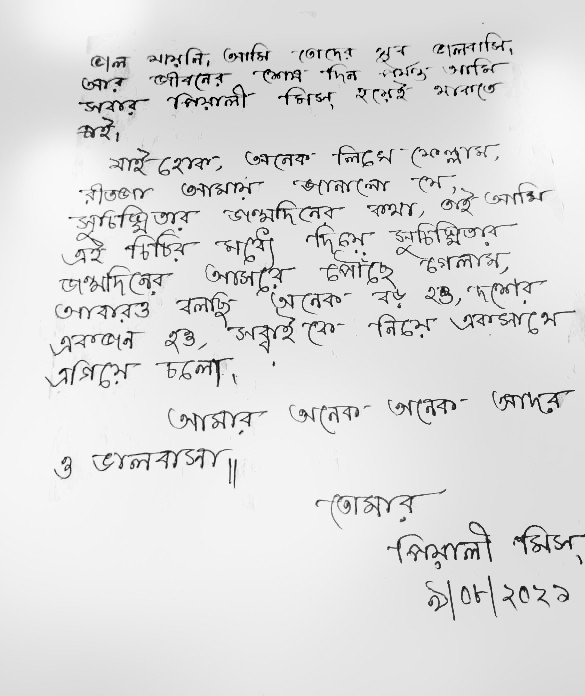 ভাল যায়নি, আমি তোদের খুব ভালবাসি,
আর জীবনের শেষ দিন পর্যন্ত আমি
সবার পিয়ালী মিস্ হয়েই থাকতে
চাই,
যাই হোক, অনেক লিখে ফেল্লাম,
রীতজা আমায় জানালো যে,
সুচিস্মিতার জন্মদিনের কথা, তাই আমি
এই চিঠির মধ্যে দিয়ে সুচিস্মিতার
জন্মদিনের আসরে পৌঁছে গেলাম,
আবারও বলছি অনেক বড় হও, দশের
একজন হও, সব্বাইকে নিয়ে একসাথে
এগিয়ে চলো,
আমার অনেক অনেক আদর
ও ভালবাসা॥
তোমার
পিয়ালী মিস্
৯/০৮/২০২১